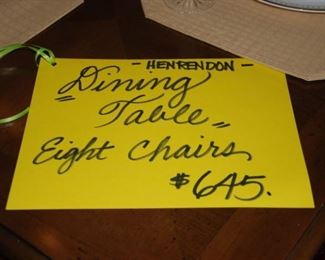 - HENRENDON -
"Dining
Table"
Eight Chairs
$645.